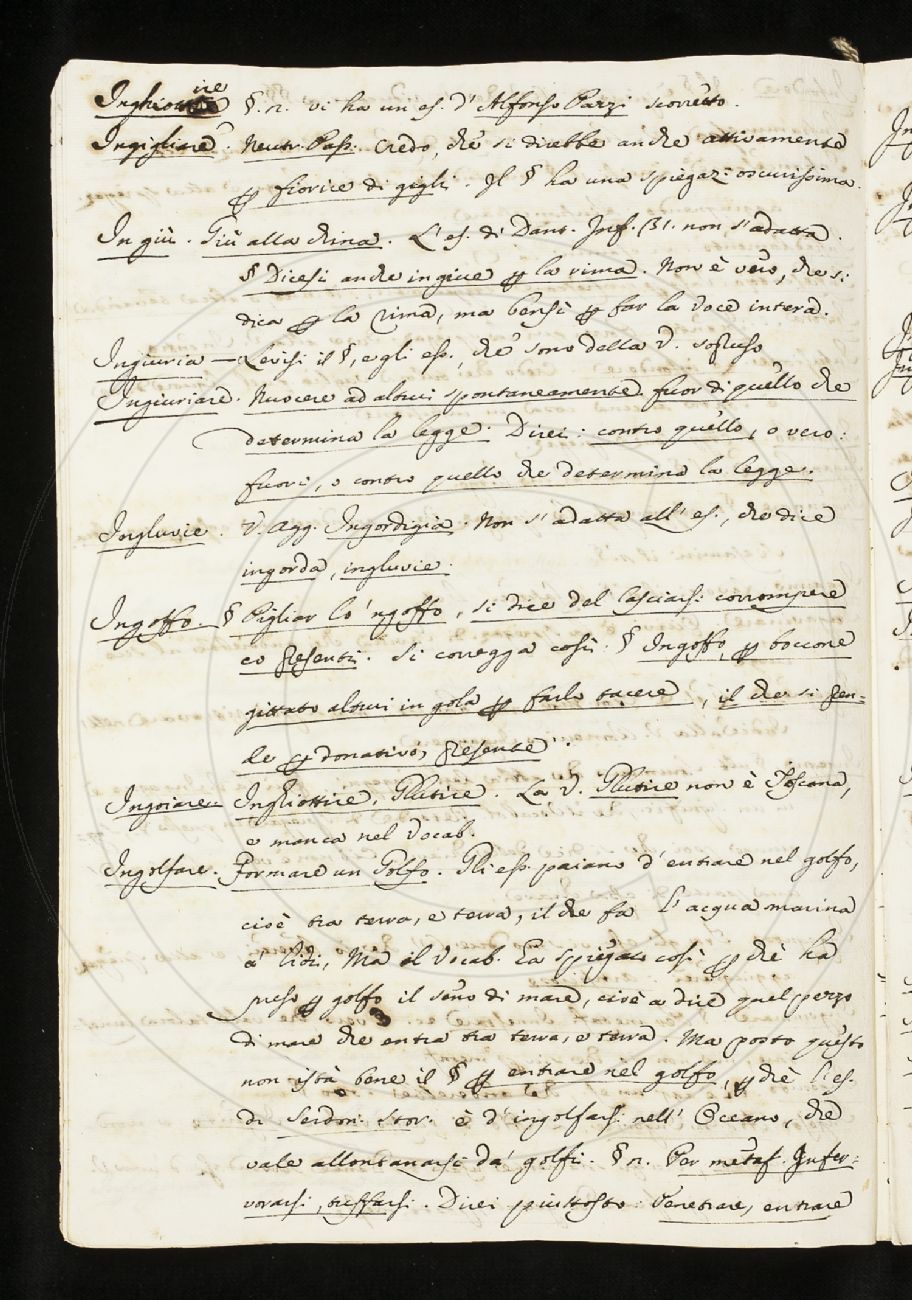 Inghiottire §. n. vi ha un es. d' Alfonso Pazzi scorretto.
Ingigliare. Neutr. Pass. Credo, che si direbbe anche attivamente
p fiorire di gigli. Il § ha una spiegaz. oscurissima.
In giù. Giù alla china. L' es. di Dant. Inf. 31. non s'adatta.
§ Dicesi anche ingiue p la rima. Non è vero, che si
dica p la rima, ma bensì p far la voce intera.
Ingiuria — Levisi il §, e gli ess., che sono della V.
Ingiuriare. Nuocere ad altrui spontaneamente fuor di quello che
determina la legge. Direi: contro quello, o vero:
fuori, o contro quello che determina la legge.
Ingluvie. V. Agg. Ingordigia. Non s' adatta all' es., che dice
ingorda, ingluvie.
Ingoffo. § Pigliar lo 'ngoffo, si dice del lasciarsi corrompere
co presenti. Si corregga così: § Ingoffo, p boccone
gittato altrui in gola p farlo tacere, il che si pren=
de p donativo, presente.
Ingoiare. Inghiottire, Glutire. La V. Glutire non è Toscana,
e manca nel Vocab.
Ingolfare. Formare un Golfo. Gli ess. paiano d' entrare nel golfo,
cioè tra terra, e terra, il che fa l' acqua marina
a' lidi, Ma il Vocab. La spiegato così p chè ha
preso p golfo il seno di mare, cioè a dire quel pezzo
di mare che entra tra terra, e terra. Ma posto questo
non istà bene il § p entrare nel golfo, p chè l'es.
di Serdon. Stor. è d' ingolfarsi nell' Oceano, che
vale allontanarsi da' golfi. § n. Per metaf. Infer=
vorarsi, tuffarsi. Direi piuttosto: Penetrare, entrare